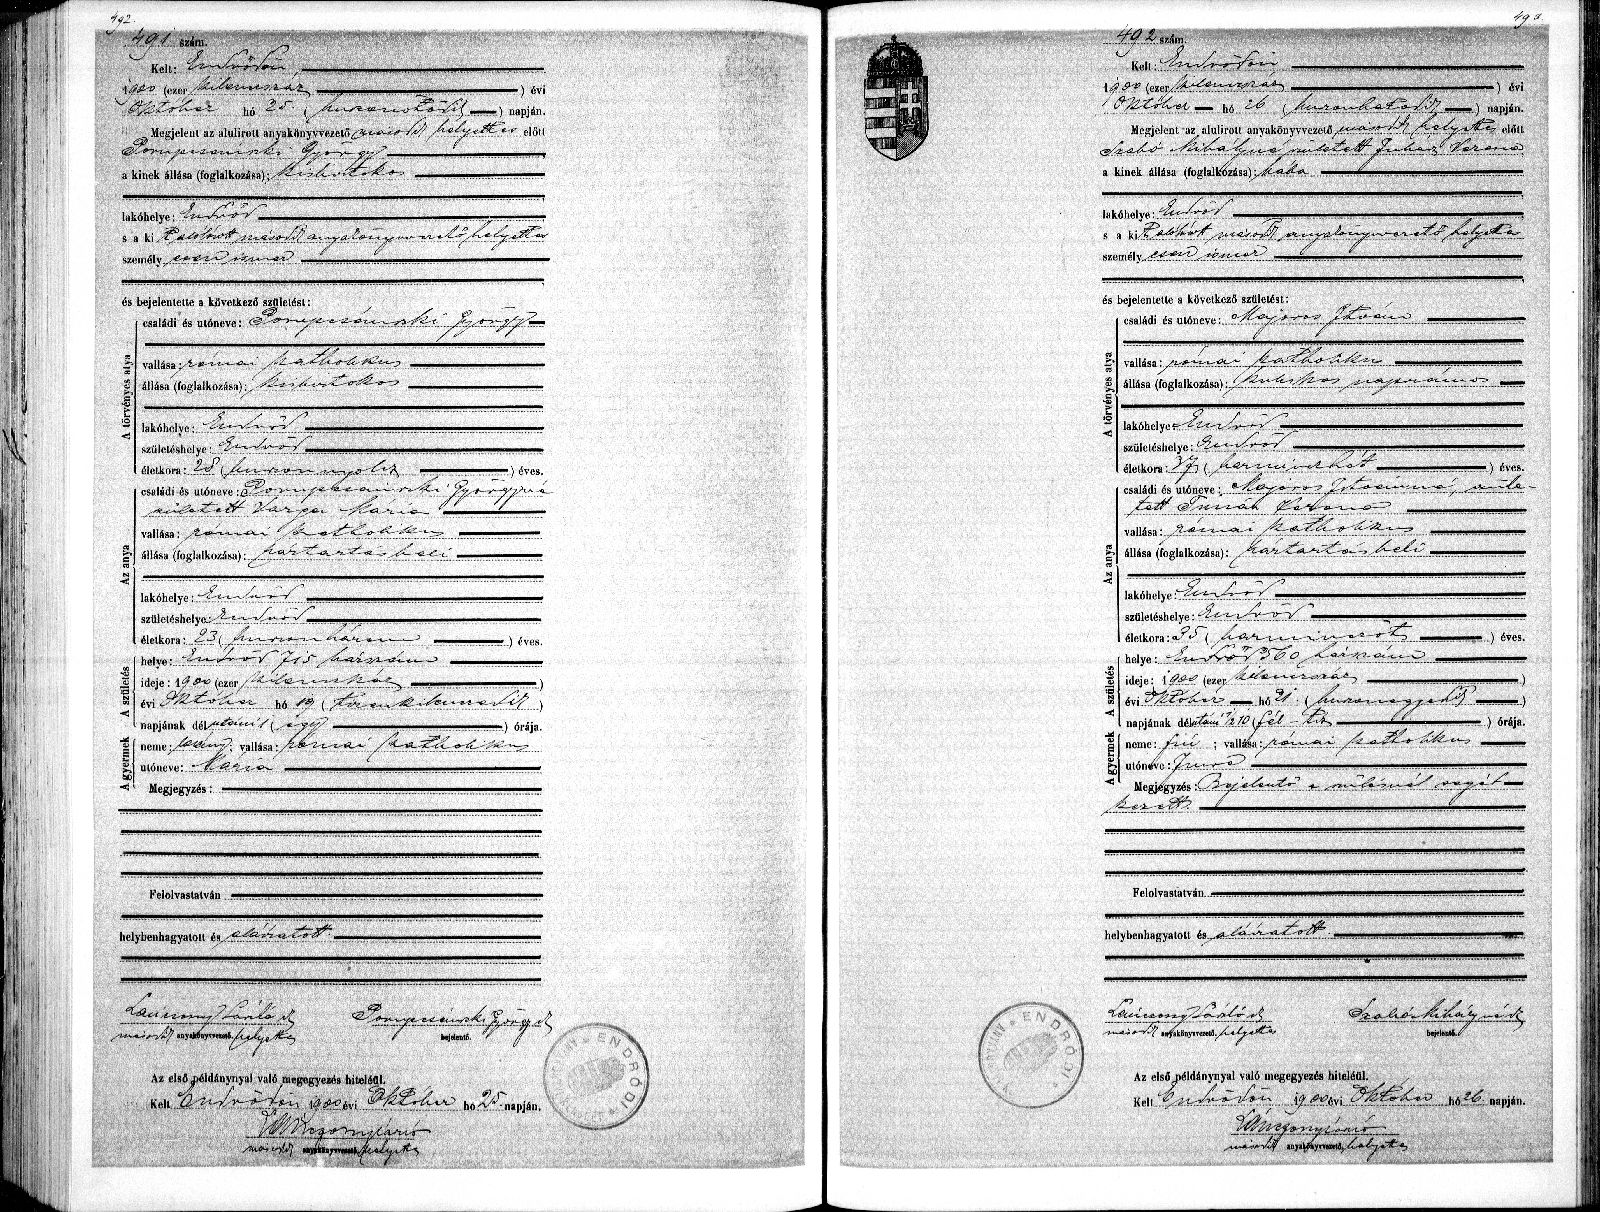 492.
491 szám.
Kelt: Endrődön,
1900 (ezer kilenczszáz ) évi
Október hó 25 ( huszonötödik ) napján.
Megjelent az alulirott anyakönyvvezető másodk helyettes előtt
György
a kinek állása (foglalkozása): kisbirtokos
lakóhelye: Endrőd
s a kit alólirott másodk anyakönyvvezető helyettes
személyesen ismer
és bejelentette a következő születést:
A törvényes atya
családi és utóneve: György
vallása: római katholikus
állása (foglalkozása): kisbirtokos
lakóhelye: Endrőd
születéshelye: Endrőd
életkora: 28 ( huszonnyolcz ) éves.
Az anya
családi és utóneve: Györgyné
született Varga Mária
vallása: római katholikus
állása (foglalkozása): háztartásbeli
lakóhelye: Endrőd
születéshelye: Endrőd
életkora: 23 ( huszonhárom ) éves.
A születés
helye: Endrőd 715 házszám
ideje: 1900 (ezer kilenczszáz )
évi Október hó 19 ( tizenkilenczedik )
napjának délutáni 1 ( egy ) órája.
A gyermek
neme: leány; vallása: római katholikus
utóneve: Mária
Megjegyzés:
Felolvastatván
helybenhagyatott és aláiratott.
György
másodk anyakönyvvezető helyettes
bejelentő.
ENDRŐDI
Az első példánynyal való megegyezés hiteléül.
Kelt Endrődön 1900 évi Október hó 25 napján.
másodk anyakönyvvezető helyettes
493.
492 szám.
Kelt: Endrődön
1900 (ezer kilenczszáz ) évi
Október hó 26 ( huszonhatodik ) napján.
Megjelent az alulirott anyakönyvvezető másodk helyettes előtt
Szabó Mihályné született Juhaz Verona
a kinek állása (foglalkozása): bába
lakóhelye: Endrőd
s a kit alólirott másodk anyakönyvvezető helyettes
személyesen ismer
és bejelentette a következő születést:
A törvényes atya
családi és utóneve: Majoros István
vallása: római katholikus
állása (foglalkozása): napszámos
lakóhelye: Endrőd
születéshelye: Endrőd
életkora: 37 ( harminczhét ) éves.
Az anya
családi és utóneve: Majoros Istvánné, szüle-
tett Verona
vallása: római katholikus
állása (foglalkozása): háztartásbeli
lakóhelye: Endrőd
születéshelye: Endrőd
életkora: 35 ( harminczöt ) éves.
A születés
helye: Endrőd 560 házszám
ideje: 1900 (ezer kilenczszáz )
évi Október hó 21. ( huszonegyedik )
napjának délutáni 1/2 10 ( fél-tiz ) órája.
A gyermek
neme: fiú ; vallása: római katholikus
utóneve:
Megjegyzés: Bejelentő a szülésnél segéd-
kezett.
Felolvastatván
helybenhagyatott és aláiratott.
Szabó Mihályné
másodk anyakönyvvezető helyettes
bejelentő.
ENDRŐDI
Az első példánynyal való megegyezés hiteléül.
Kelt Endrődön 1900 évi Október hó 26 napján.
másodk anyakönyvvezető helyettes